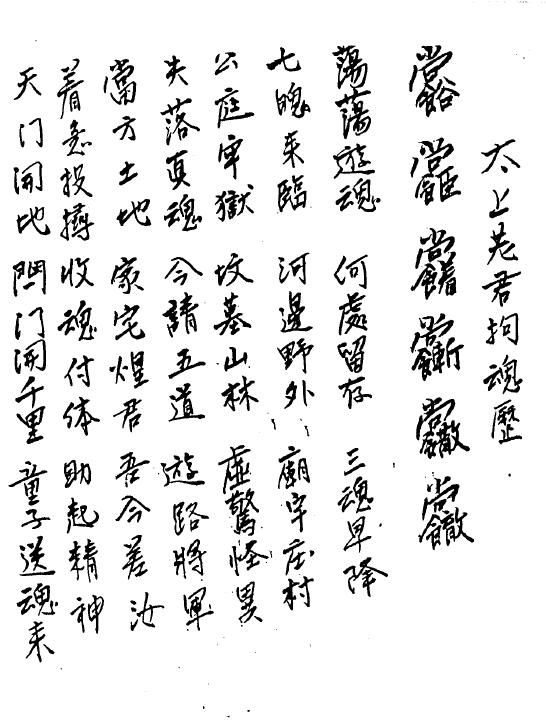 太上老君拘魂歷
蕩蕩遊魂 何處留存 三魂早降
七魄来臨 河邊野外 廟宇庄村
公庭牢獄 坟墓山林 虛驚怪異
失落真魂 今請五道 遊路將軍
當方土地 家宅煌君 吾今差汝
着意投摶收魂付体 助起精神
天门開地閉门開千里 童子送魂来